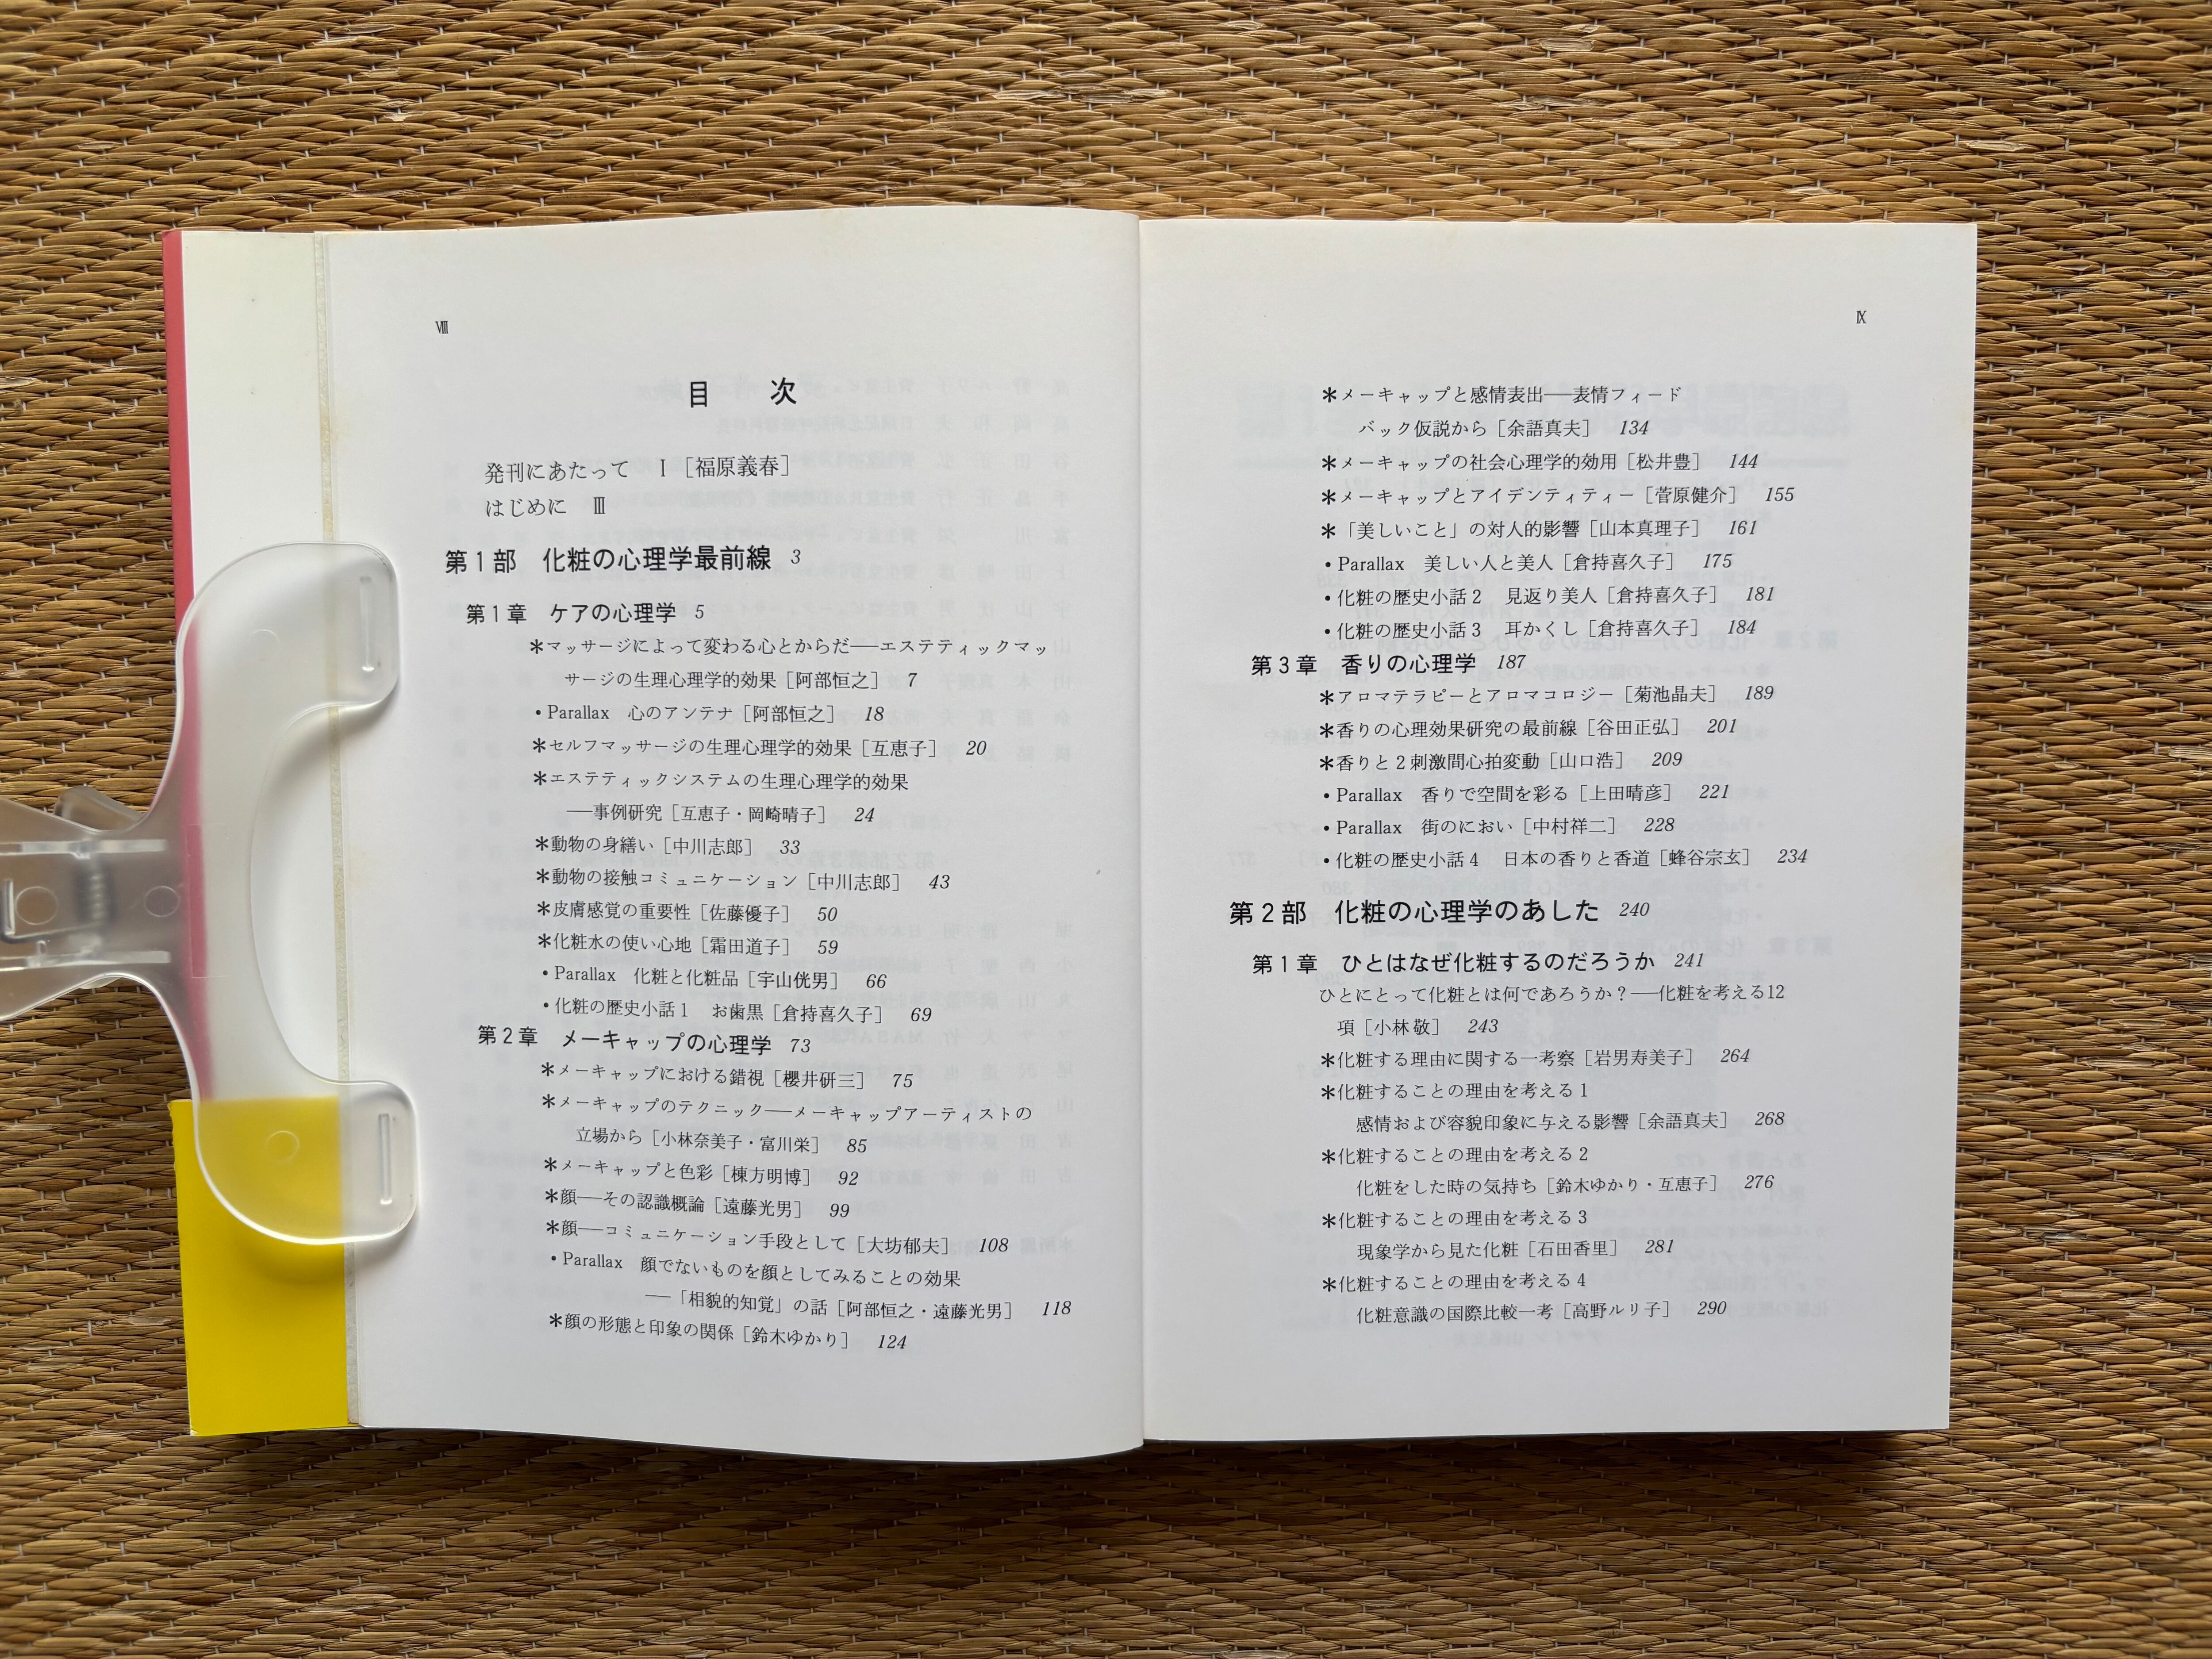 Ⅷ
目　次
発刊にあたって　Ⅰ［福原義春］
はじめに　Ⅲ
第1部　化粧の心理学最前線　3
第1章　ケアの心理学　5
＊マッサージによって変わる心とからだ──エステティックマッ
サージの生理心理学的効果［阿部恒之］　7
・Parallax　心のアンテナ［阿部恒之］　18
＊セルフマッサージの生理心理学的効果［互恵子］　20
＊エステティックシステムの生理心理学的効果
──事例研究［互恵子・岡崎晴子］　24
＊動物の身繕い［中川志郎］　33
＊動物の接触コミュニケーション［中川志郎］　43
＊皮膚感覚の重要性［佐藤優子］　50
＊化粧水の使い心地［霜田道子］　59
・Parallax　化粧と化粧品［宇山侊男］　66
・化粧の歴史小話1　お歯黒［倉持喜久子］　69
第2章　メーキャップの心理学　73
＊メーキャップにおける錯視［櫻井研三］　75
＊メーキャップのテクニック──メーキャップアーティストの
立場から［小林奈美子・富川栄］　85
＊メーキャップと色彩［棟方明博］　92
＊顔──その認識概論［遠藤光男］　99
＊顔──コミュニケーション手段として［大坊郁夫］　108
・Parallax　顔でないものを顔としてみることの効果
──「相貌的知覚」の話［阿部恒之・遠藤光男］　118
＊顔の形態と印象の関係［鈴木ゆかり］　124
Ⅸ
＊メーキャップと感情表出──表情フィード
バック仮説から［余語真夫］　134
＊メーキャップの社会心理学的効用［松井豊］　144
＊メーキャップとアイデンティティー［菅原健介］　155
＊「美しいこと」の対人的影響［山本真理子］　161
・Parallax　美しい人と美人［倉持喜久子］　175
・化粧の歴史小話2　見返り美人［倉持喜久子］　181
・化粧の歴史小話3　耳かくし［倉持喜久子］　184
第3章　香りの心理学　187
＊アロマテラピーとアロマコロジー［菊池晶夫］　189
＊香りの心理効果研究の最前線［谷田正弘］　201
＊香りと2刺激間心拍変動［山口浩］　209
・Parallax　香りで空間を彩る［上田晴彦］　221
・Parallax　街のにおい［中村祥二］　228
・化粧の歴史小話4　日本の香りと香道［蜂谷宗玄］　234
第2部　化粧の心理学のあした　240
第1章　ひとはなぜ化粧するのだろうか　241
ひとにとって化粧とは何であろうか？──化粧を考える12
項［小林敬］　243
＊化粧する理由に関する一考察［岩男寿美子］　264
＊化粧することの理由を考える1
感情および容貌印象に与える影響［余語真夫］　268
＊化粧することの理由を考える2
化粧をした時の気持ち［鈴木ゆかり・互恵子］　276
＊化粧することの理由を考える3
現象学から見た化粧［石田香里］　281
＊化粧することの理由を考える4
化粧意識の国際比較一考［高野ルリ子］　290